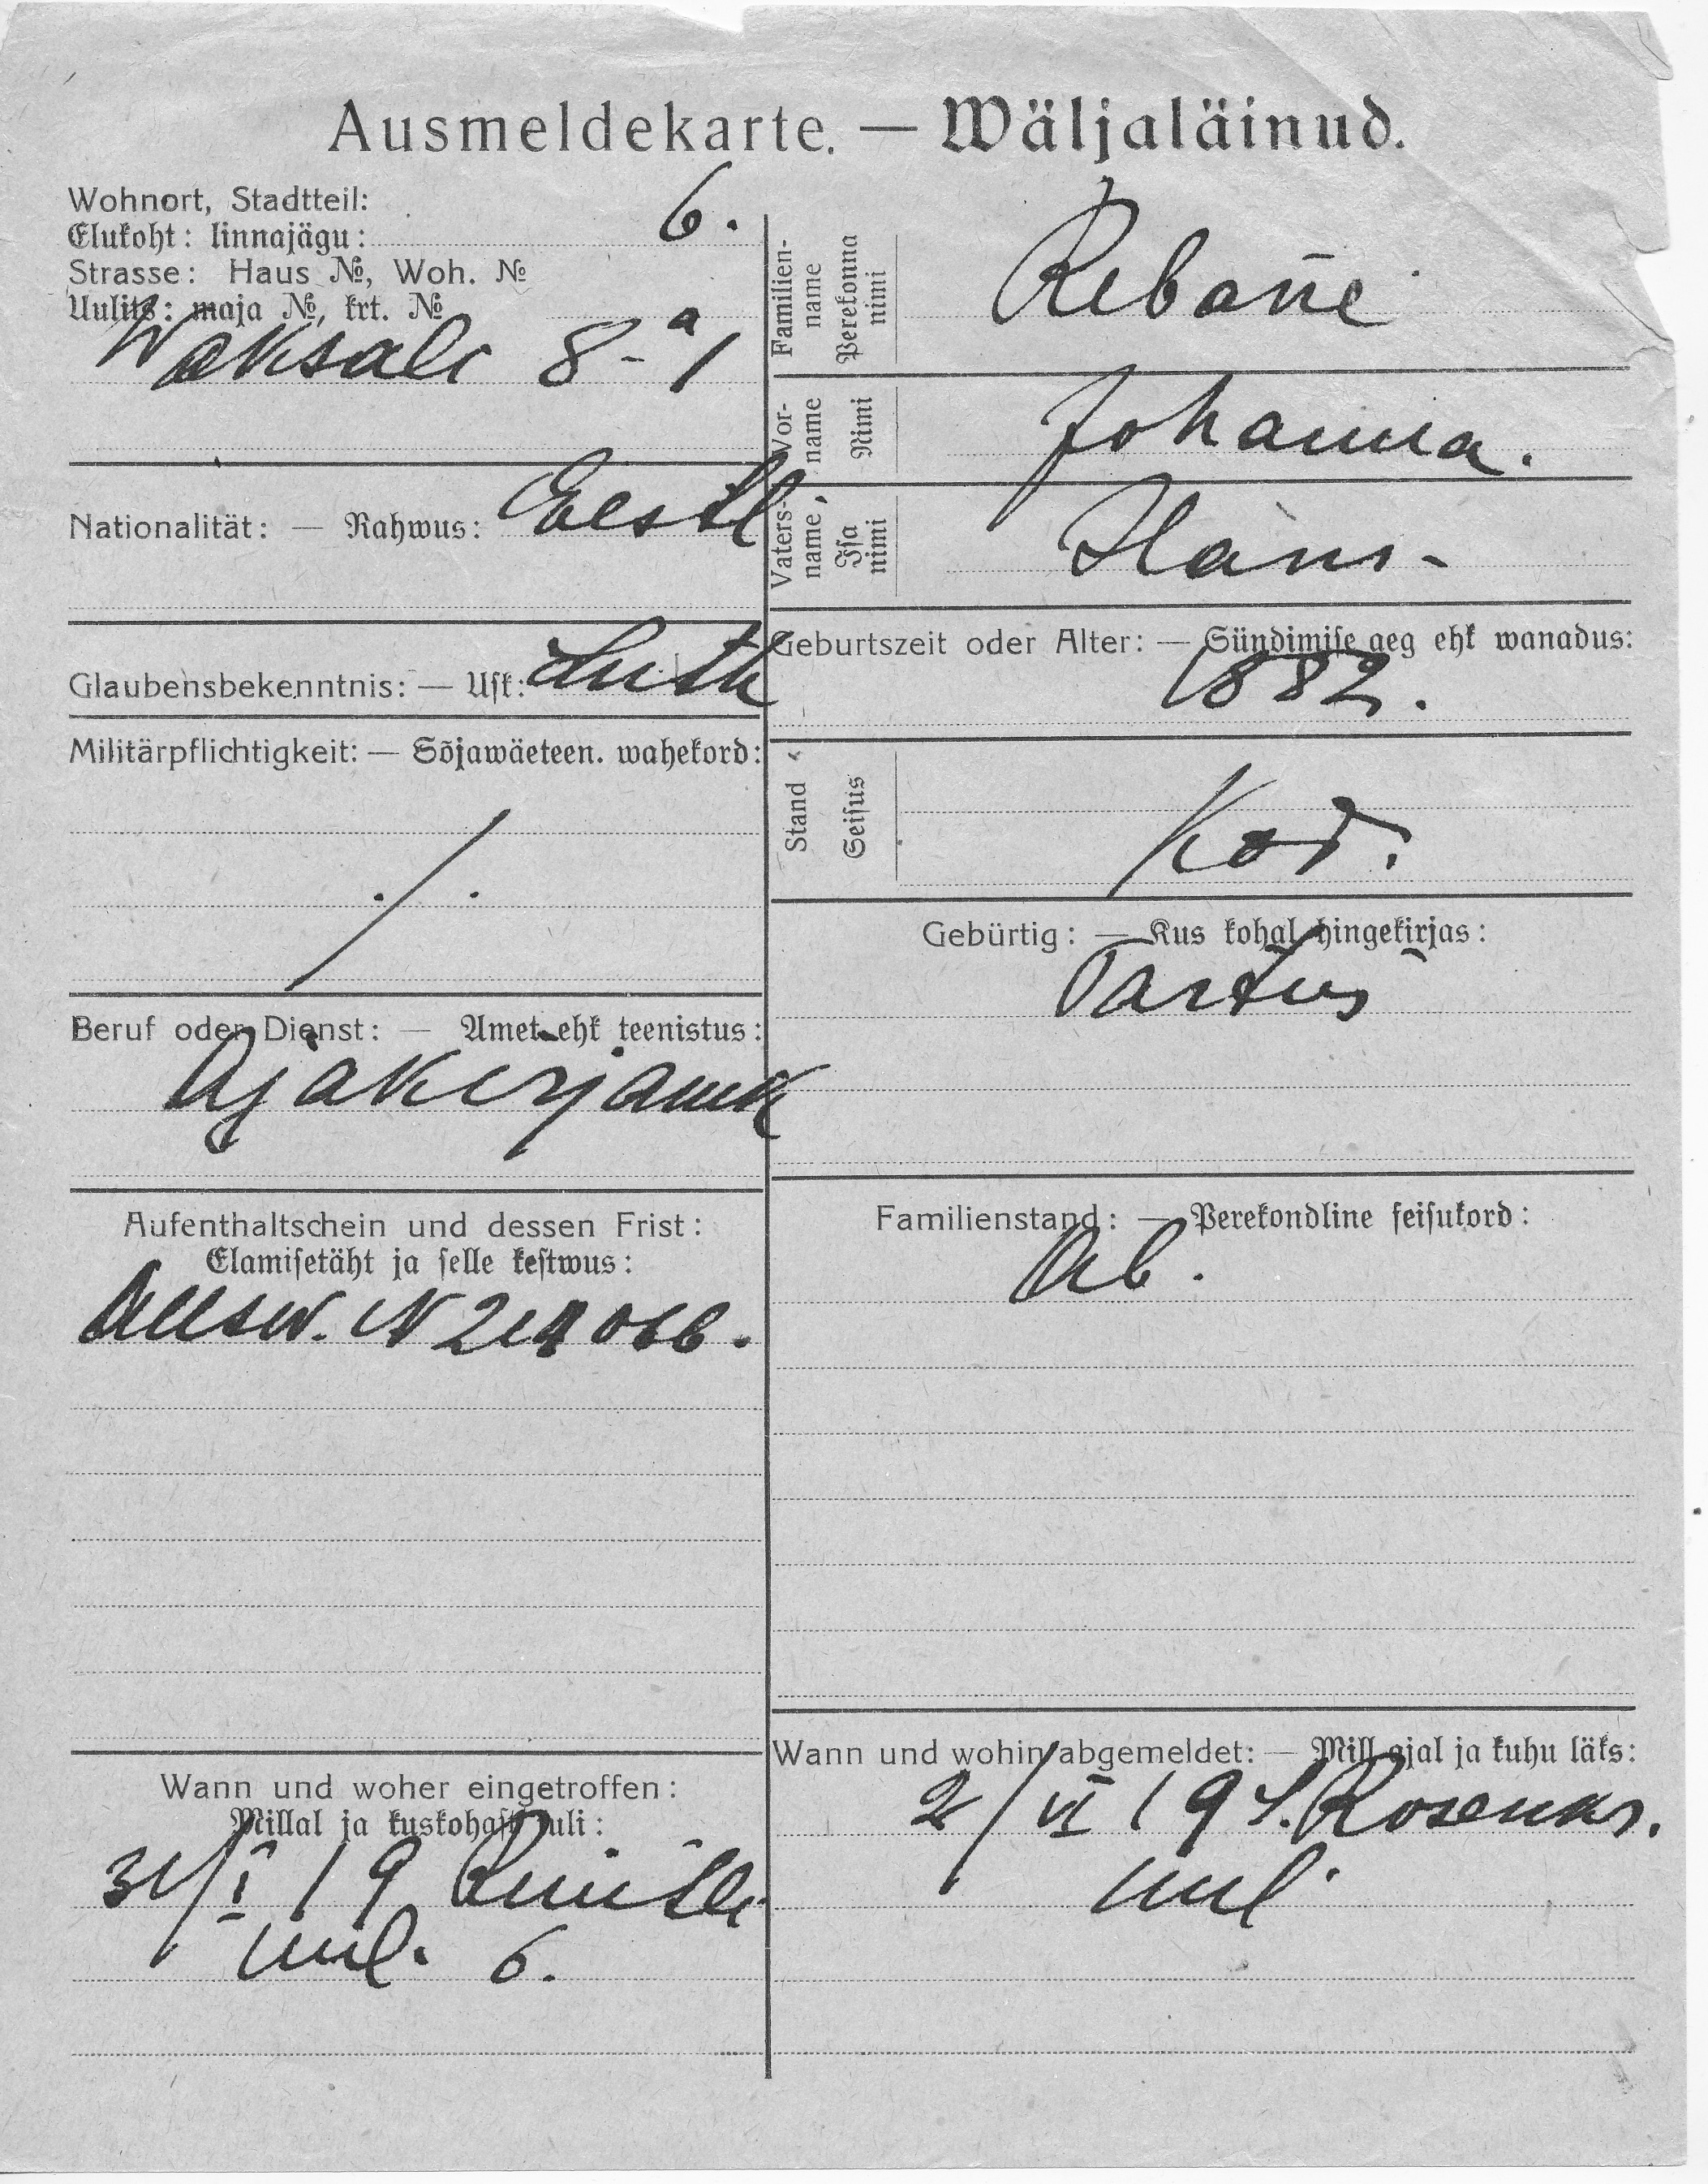 Ausmeldekarte. — Wäljaläinud.
Wohnort, Stadtteil:
Elukoht: linnajägu: 6.
Strasse: Haus №, Woh. №
Uulits: maja №, krt. №
Waksali 8-a/1
Nationalität: — Rahwus: Eesti
Glaubensbekenntnis: — Usk: Luth
Militärpflichtigkeit: — Sõjawäeteen. wahekord:
./.
Beruf oder Dienst: — Amet ehk teenistus:
Ajakirjanik
Aufenthaltschein und dessen Frist:
Elamisetäht ja selle kestwus:
N
Wann und woher eingetroffen:
Millal ja kuskohast tuli:
31/I 19
uul. 6.
Familien-
name
Perekonna
nimi
Rebane
Vor-
name
Nimi
Johanna.
Vaters-
name
Isa
nimi
Hans-
Geburtszeit oder Alter: — Sündimise aeg ehk wanadus:
1882.
Stand
Seisus
Kod.
Gebürtig: — Kus kohal hingekirjas:
Tartus
Familienstand: — Perekondline seisukord:
Ab.
Wann und wohin abgemeldet: — Mill ajal ja kuhu läks:
2/VI 19
uul